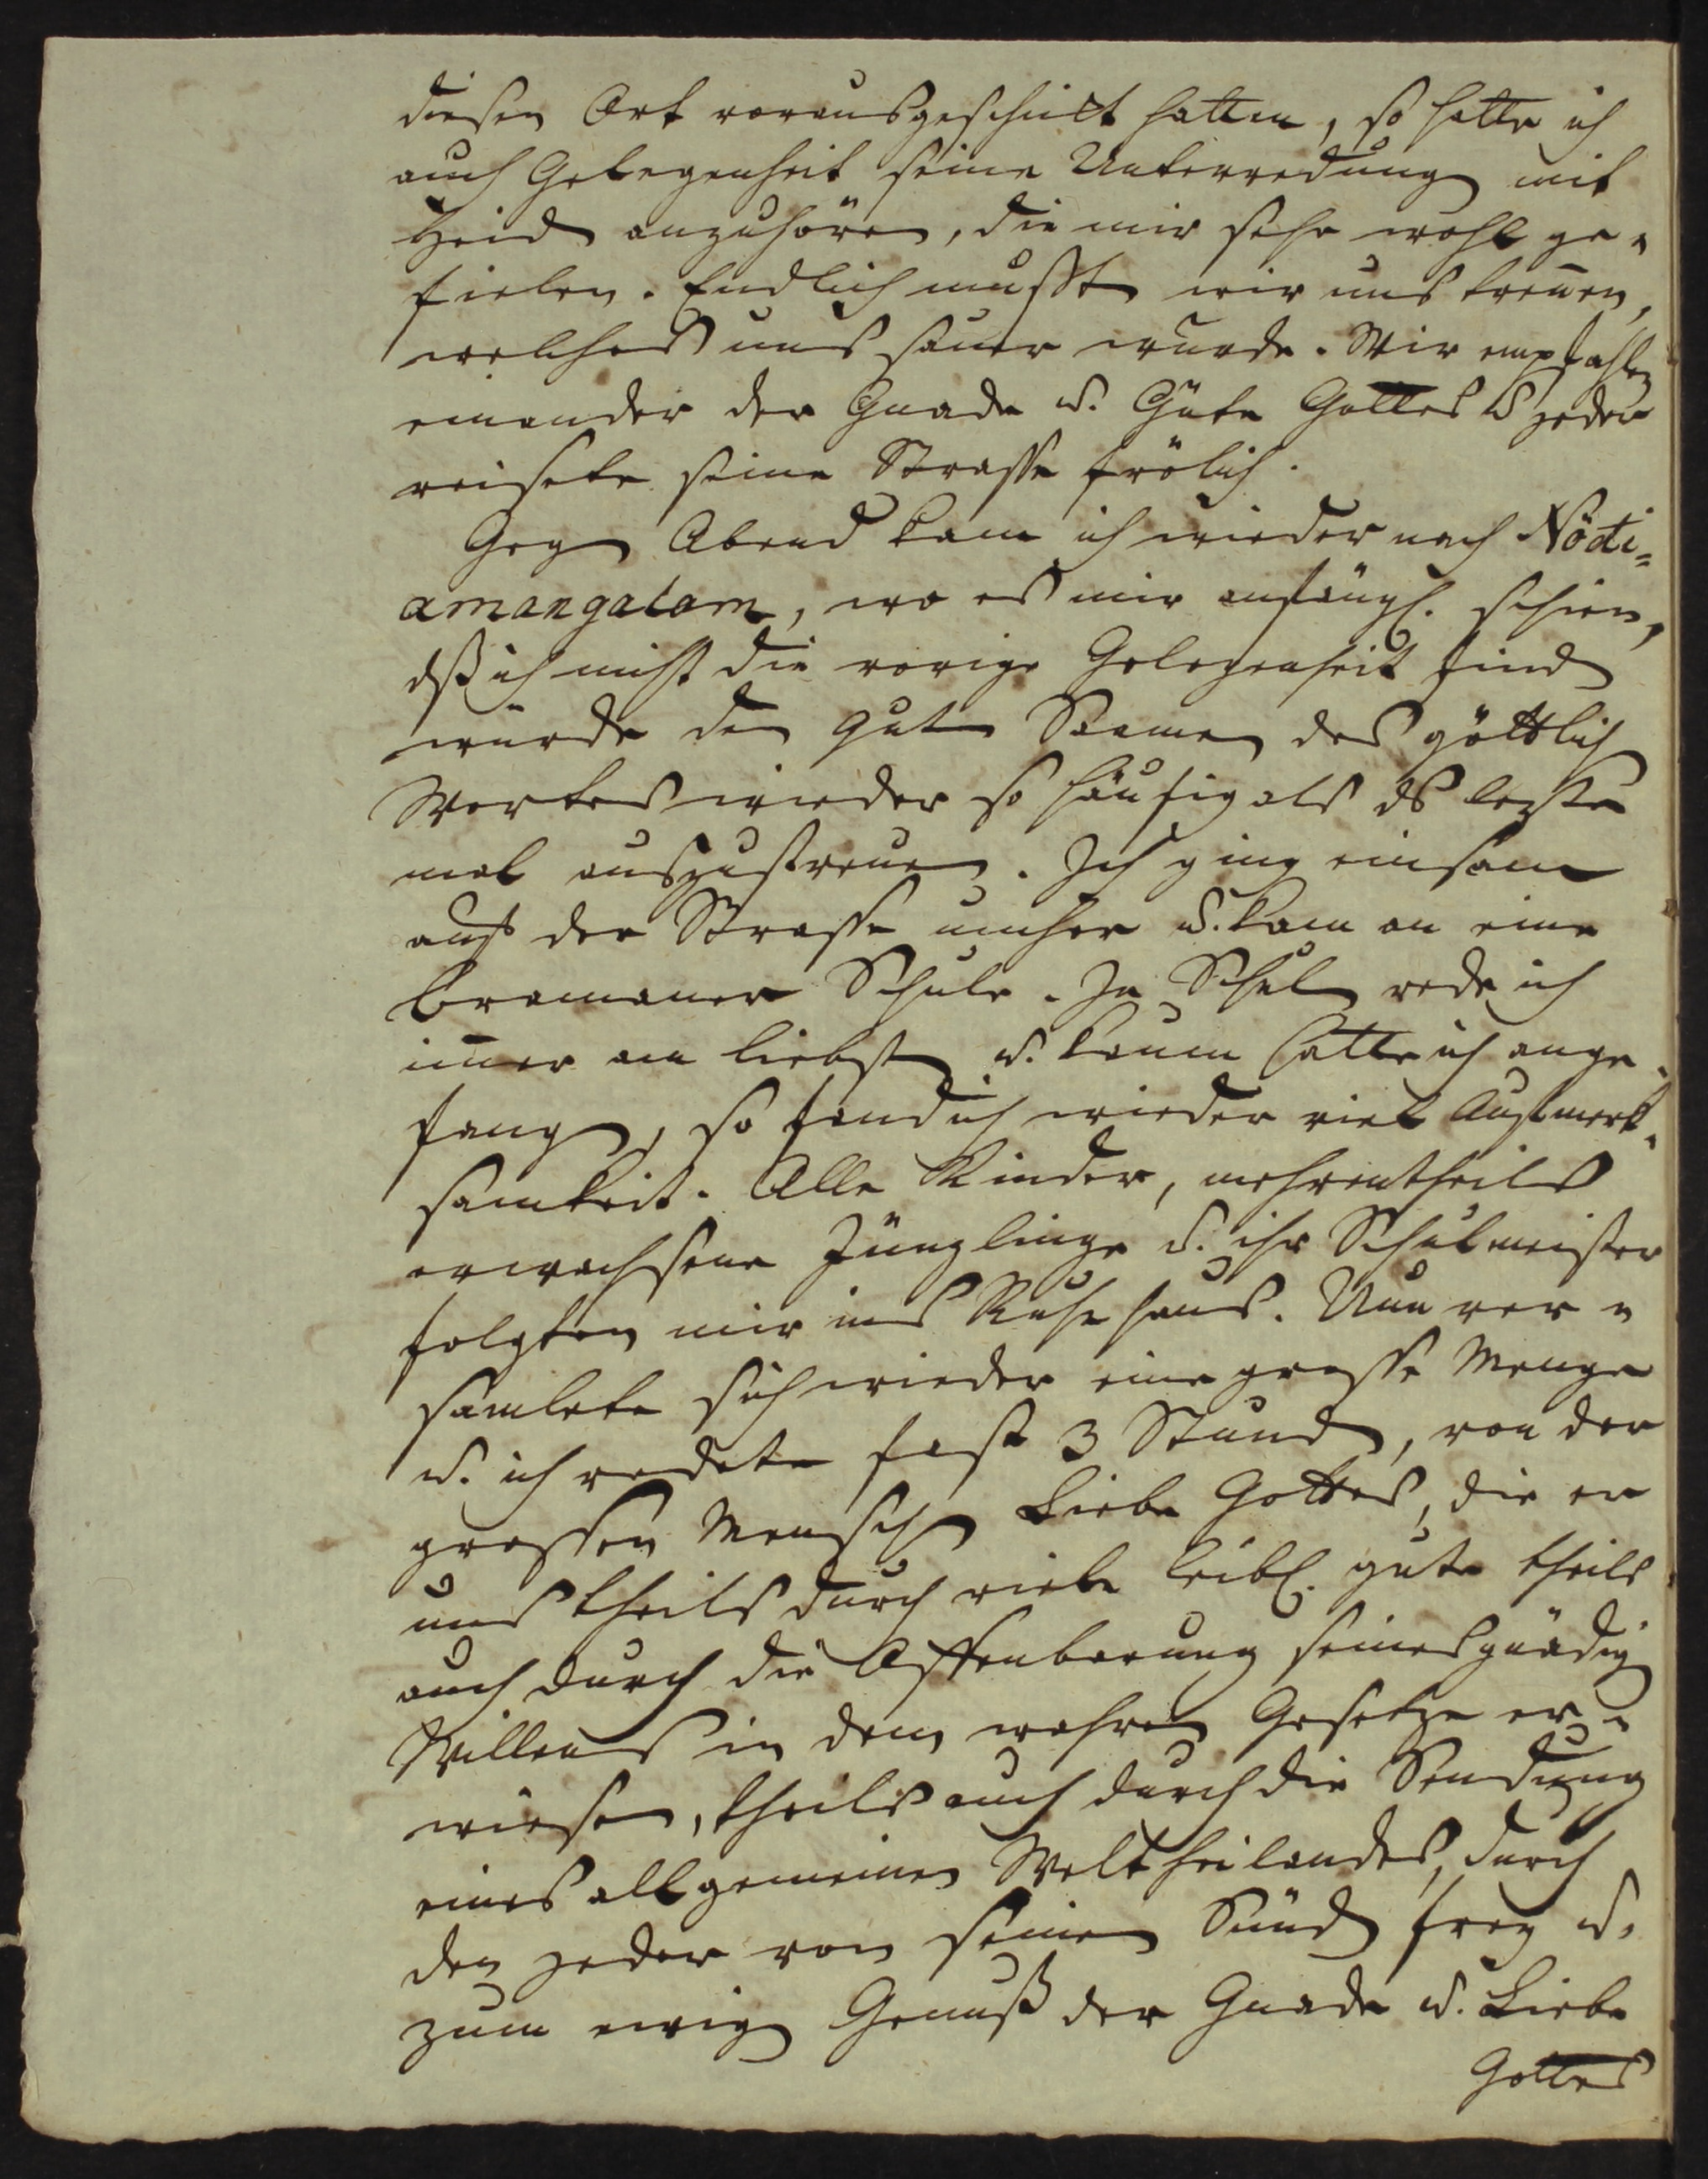 diesen Ort vorausgeschickt hatten, so hatte ich
auch Gelegenheit seine Unterredung mit
Heiden anzuhören, die mir sehr wohl ge=
fielen. Endlich mußten wir uns treñen,
welches uns sauer wurde. Wir empfahlen
einander der Gnade u. Güte Gottes u jeder
reisete seine Strasse frölich.
Gegen Abend kam ich wieder nach Nödi=
amangalam, wo es mir anfängl. schien,
dß ich nicht die vorige Gelegenheit finden
würde den guten Saamen des göttlichen
Wortes wieder so häufig als ds lezte
mal auszustreuen. Ich ging einsam
auf der Strasse umher u. kam an eine
Bramaner Schule. In Schulen rede ich
im̃er am liebsten u. kaum hatte ich ange=
fangen, so fand ich wieder viel Aufmerk=
samkeit. Alle Kinder, mehrentheils
erwachsene Jünglinge u. ihr Schulmeister
folgten mir ins Ruhehaus. Nun ver=
samlete sich wieder eine grosse Menge
u. ich redete fast 3 Stunden, von der
grossen Menschen Liebe Gottes, die er
uns theils durch viele leibl. gute theils
auch durch die Offenbarung seines gnädigen
Willens in dem wahren Gesetze er=
wiesen, theils auch durch die Sendung
eines allgemeinen Weltheilandes, durch
den jeder von seinen Sünden frey u.
zum ewigen Genuß der Gnade u. Liebe
Gottes